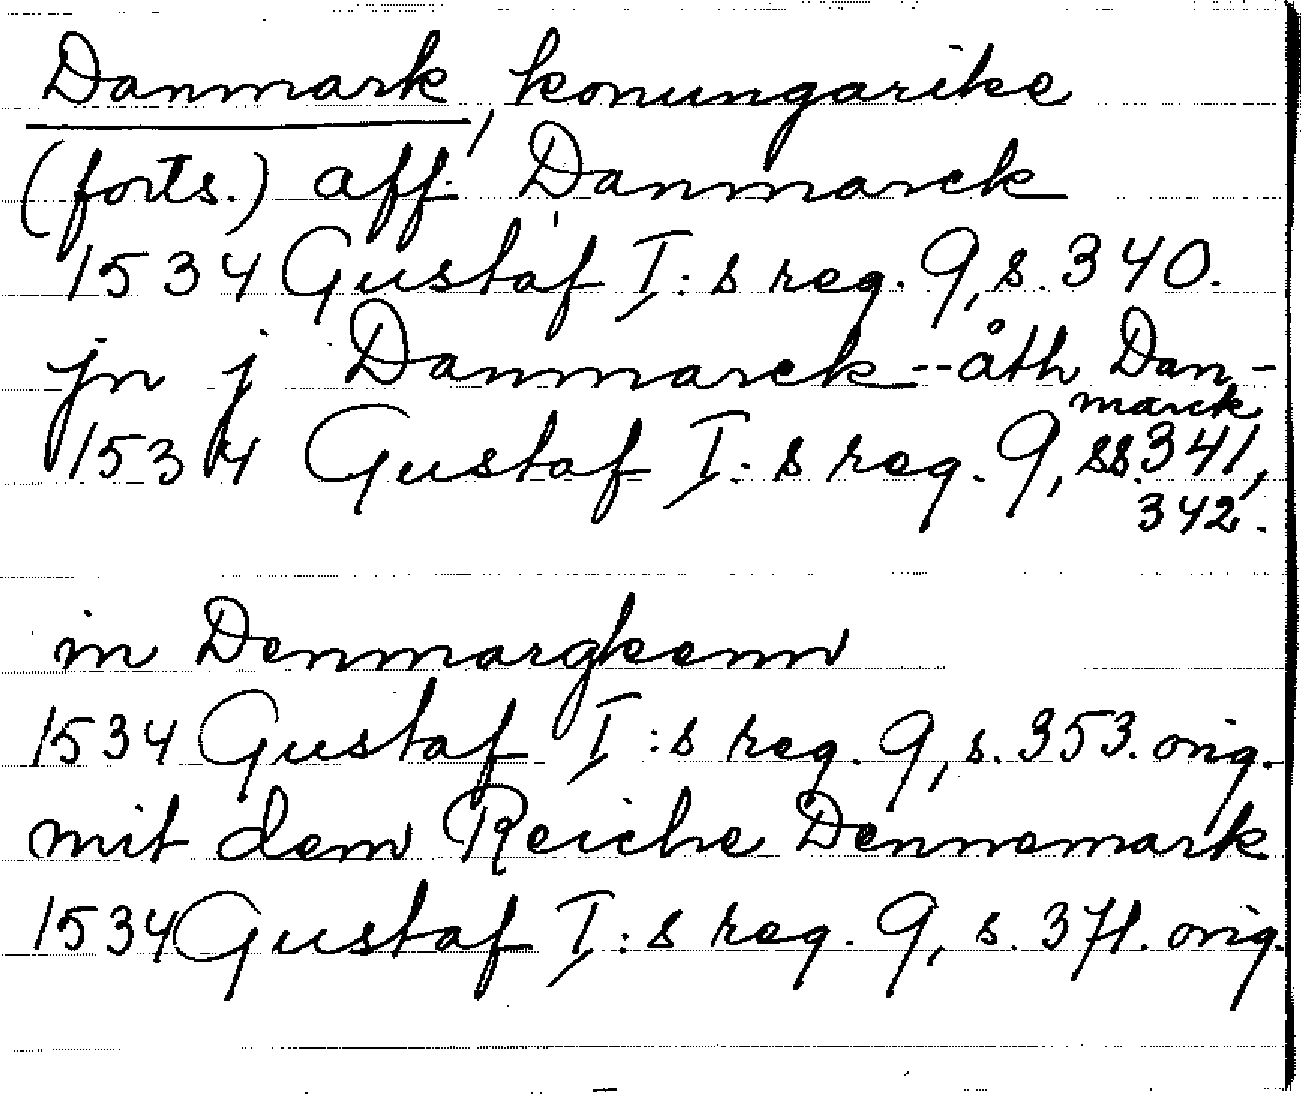 Danmark, konungarike
(forts.) aff. Danmarck
1534 Gustaf I:s reg. 9, s. 340.
jn j Danmarck -- åth Dan-
marck
1534 Gustaf I:s reg. 9, ss. 341,
342.
in Denmargkenn
1534 Gustaf I:s reg. 9, s. 353. orig.
mit dem Reiche Dennemark
1534 Gustaf I:s reg. 9, s. 371. orig.